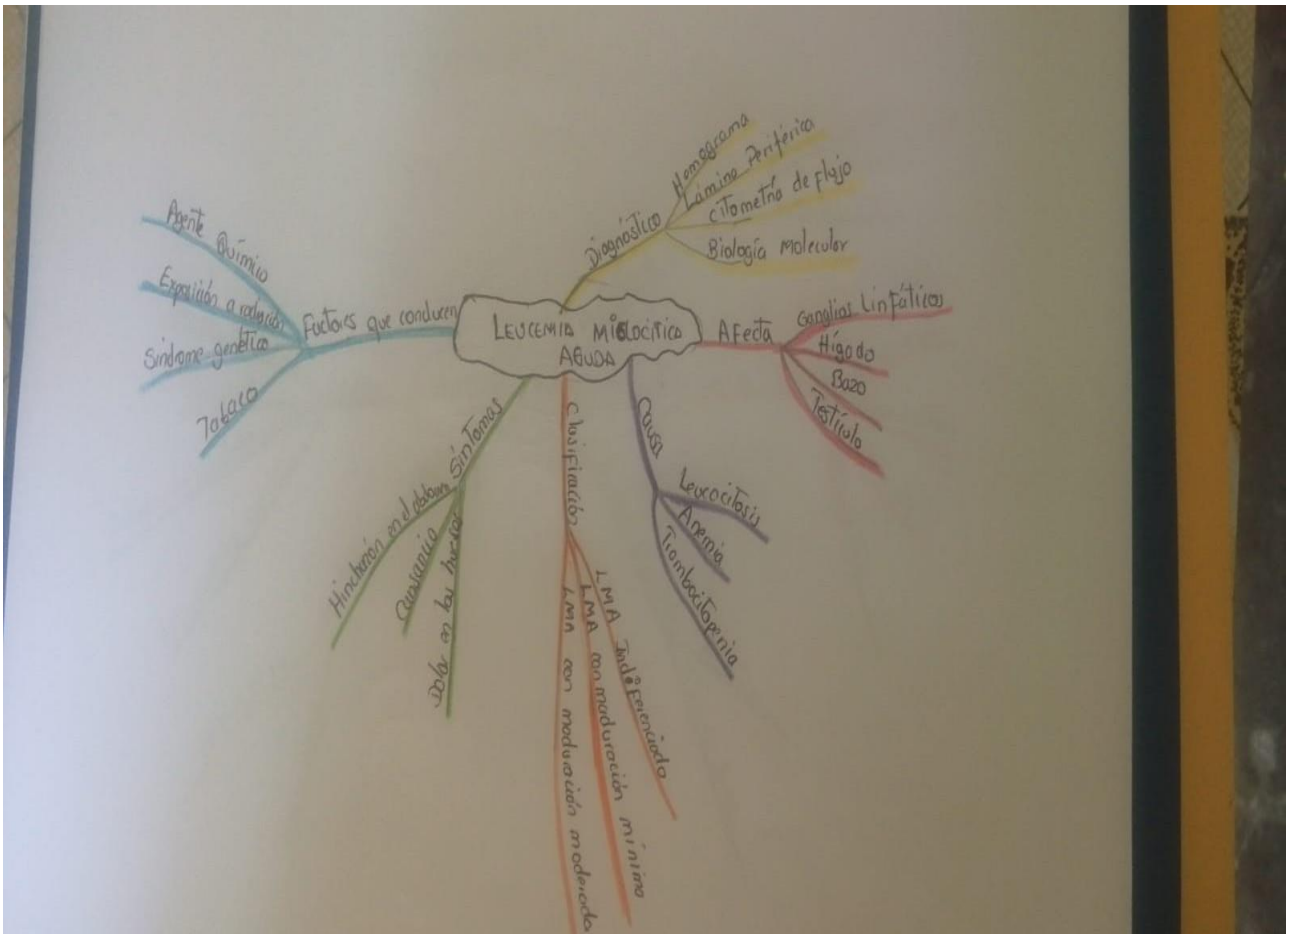 LEUCEMIA MIELOCITICA
AGUDA
Diagnóstico
Hemograma
Lámina Periférica
Citometría de flujo
Biología Molecular
Afecta
Ganglios Linfáticos
Hígado
Bazo
Testículo
Causa
Leucocitosis
Anemia
Trombocitopenia
Clasificación
LMA Indiferenciada
LMA con maduración mínima
LMA con maduración moderada
Síntomas
Hinchazón en el abdomen
Cansancio
Dolor en los huesos
Factores que conducen
Agente Químico
Exposición a radiación
Síndrome genético
Tabaco